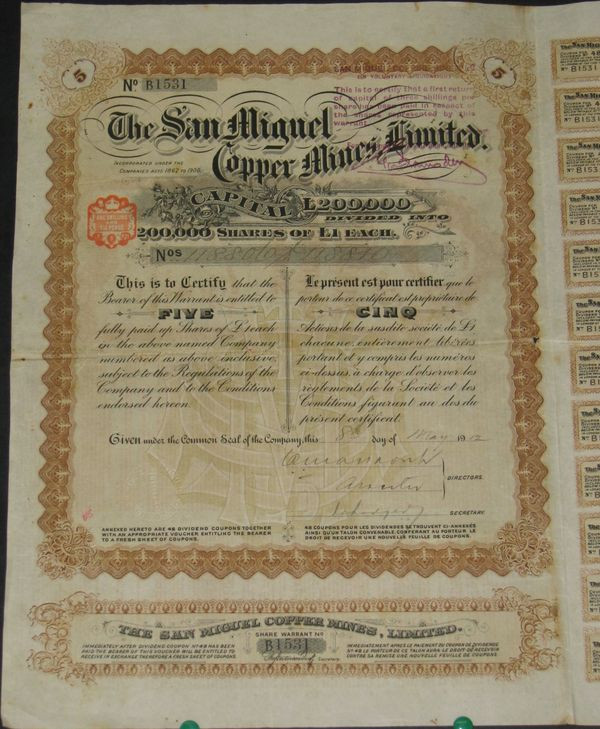 5
5
No B1531
FOR VOLUNTARY LIQUIDATION
This is to certify that a first return
of capital of three shillings per
share has been paid in respect of
the shares represented by this
warrant.
The San Miguel
Copper Mines, Limited.
INCORPORATED UNDER THE
COMPANIES ACTS 1862 TO 1900.
CAPITAL £200,000
DIVIDED INTO
200,000 SHARES OF £1 EACH.
Nos
This is to Certify that the
Bearer of this Warrant is entitled to
FIVE
fully paid up Shares of £1 each
in the above named Company
numbered as above inclusive,
subject to the Regulations of the
Company and to the Conditions
endorsed hereon.
Le présent est pour certifier que le
porteur de ce certificat est propriétaire de
CINQ
Actions de la susdite société de £1
chacune, entièrement libérées
portant et y compris les numéros
ci-dessus, à charge d'observer les
règlements de la Société et les
Conditions figurant au dos du
présent certificat.
Given under the Common Seal of the Company, this 8th day of May 1912
DIRECTORS.
SECRETARY.
ANNEXED HERETO ARE 48 DIVIDEND COUPONS TOGETHER
WITH AN APPROPRIATE VOUCHER ENTITLING THE BEARER
TO A FRESH SHEET OF COUPONS.
48 COUPONS POUR LES DIVIDENDES SE TROUVENT CI-ANNEXÉS
AINSI QU'UN TALON CONVENABLE CONFERANT AU PORTEUR LE
DROIT DE RECEVOIR UNE NOUVELLE FEUILLE DE COUPONS.
THE SAN MIGUEL COPPER MINES, LIMITED.
SHARE WARRANT No
B1531
IMMEDIATELY AFTER DIVIDEND COUPON No 48 HAS BEEN
PAID THE BEARER OF THIS VOUCHER WILL BE ENTITLED TO
RECEIVE IN EXCHANGE THEREFOR A FRESH SHEET OF COUPONS.
Secretary
IMMEDIATEMENT APRES LE PAIEMENT DU COUPON DE DIVIDENDE
No 48 LE PORTEUR DE CE TALON AURA LE DROIT DE RECEVOIR
CONTRE SA REMISE UNE NOUVELLE FEUILLE DE COUPONS.